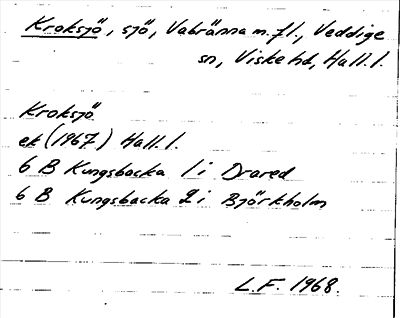 Kroksjö, sjö, Vabränna m. fl., Veddige
sn, Viske hd, Hall. l.
Kroksjö
ek (1967) Hall. l.
6 B Kungsbacka 1 i Drared
6 B Kungsbacka 2 i Björkholm
L.F. 1968.